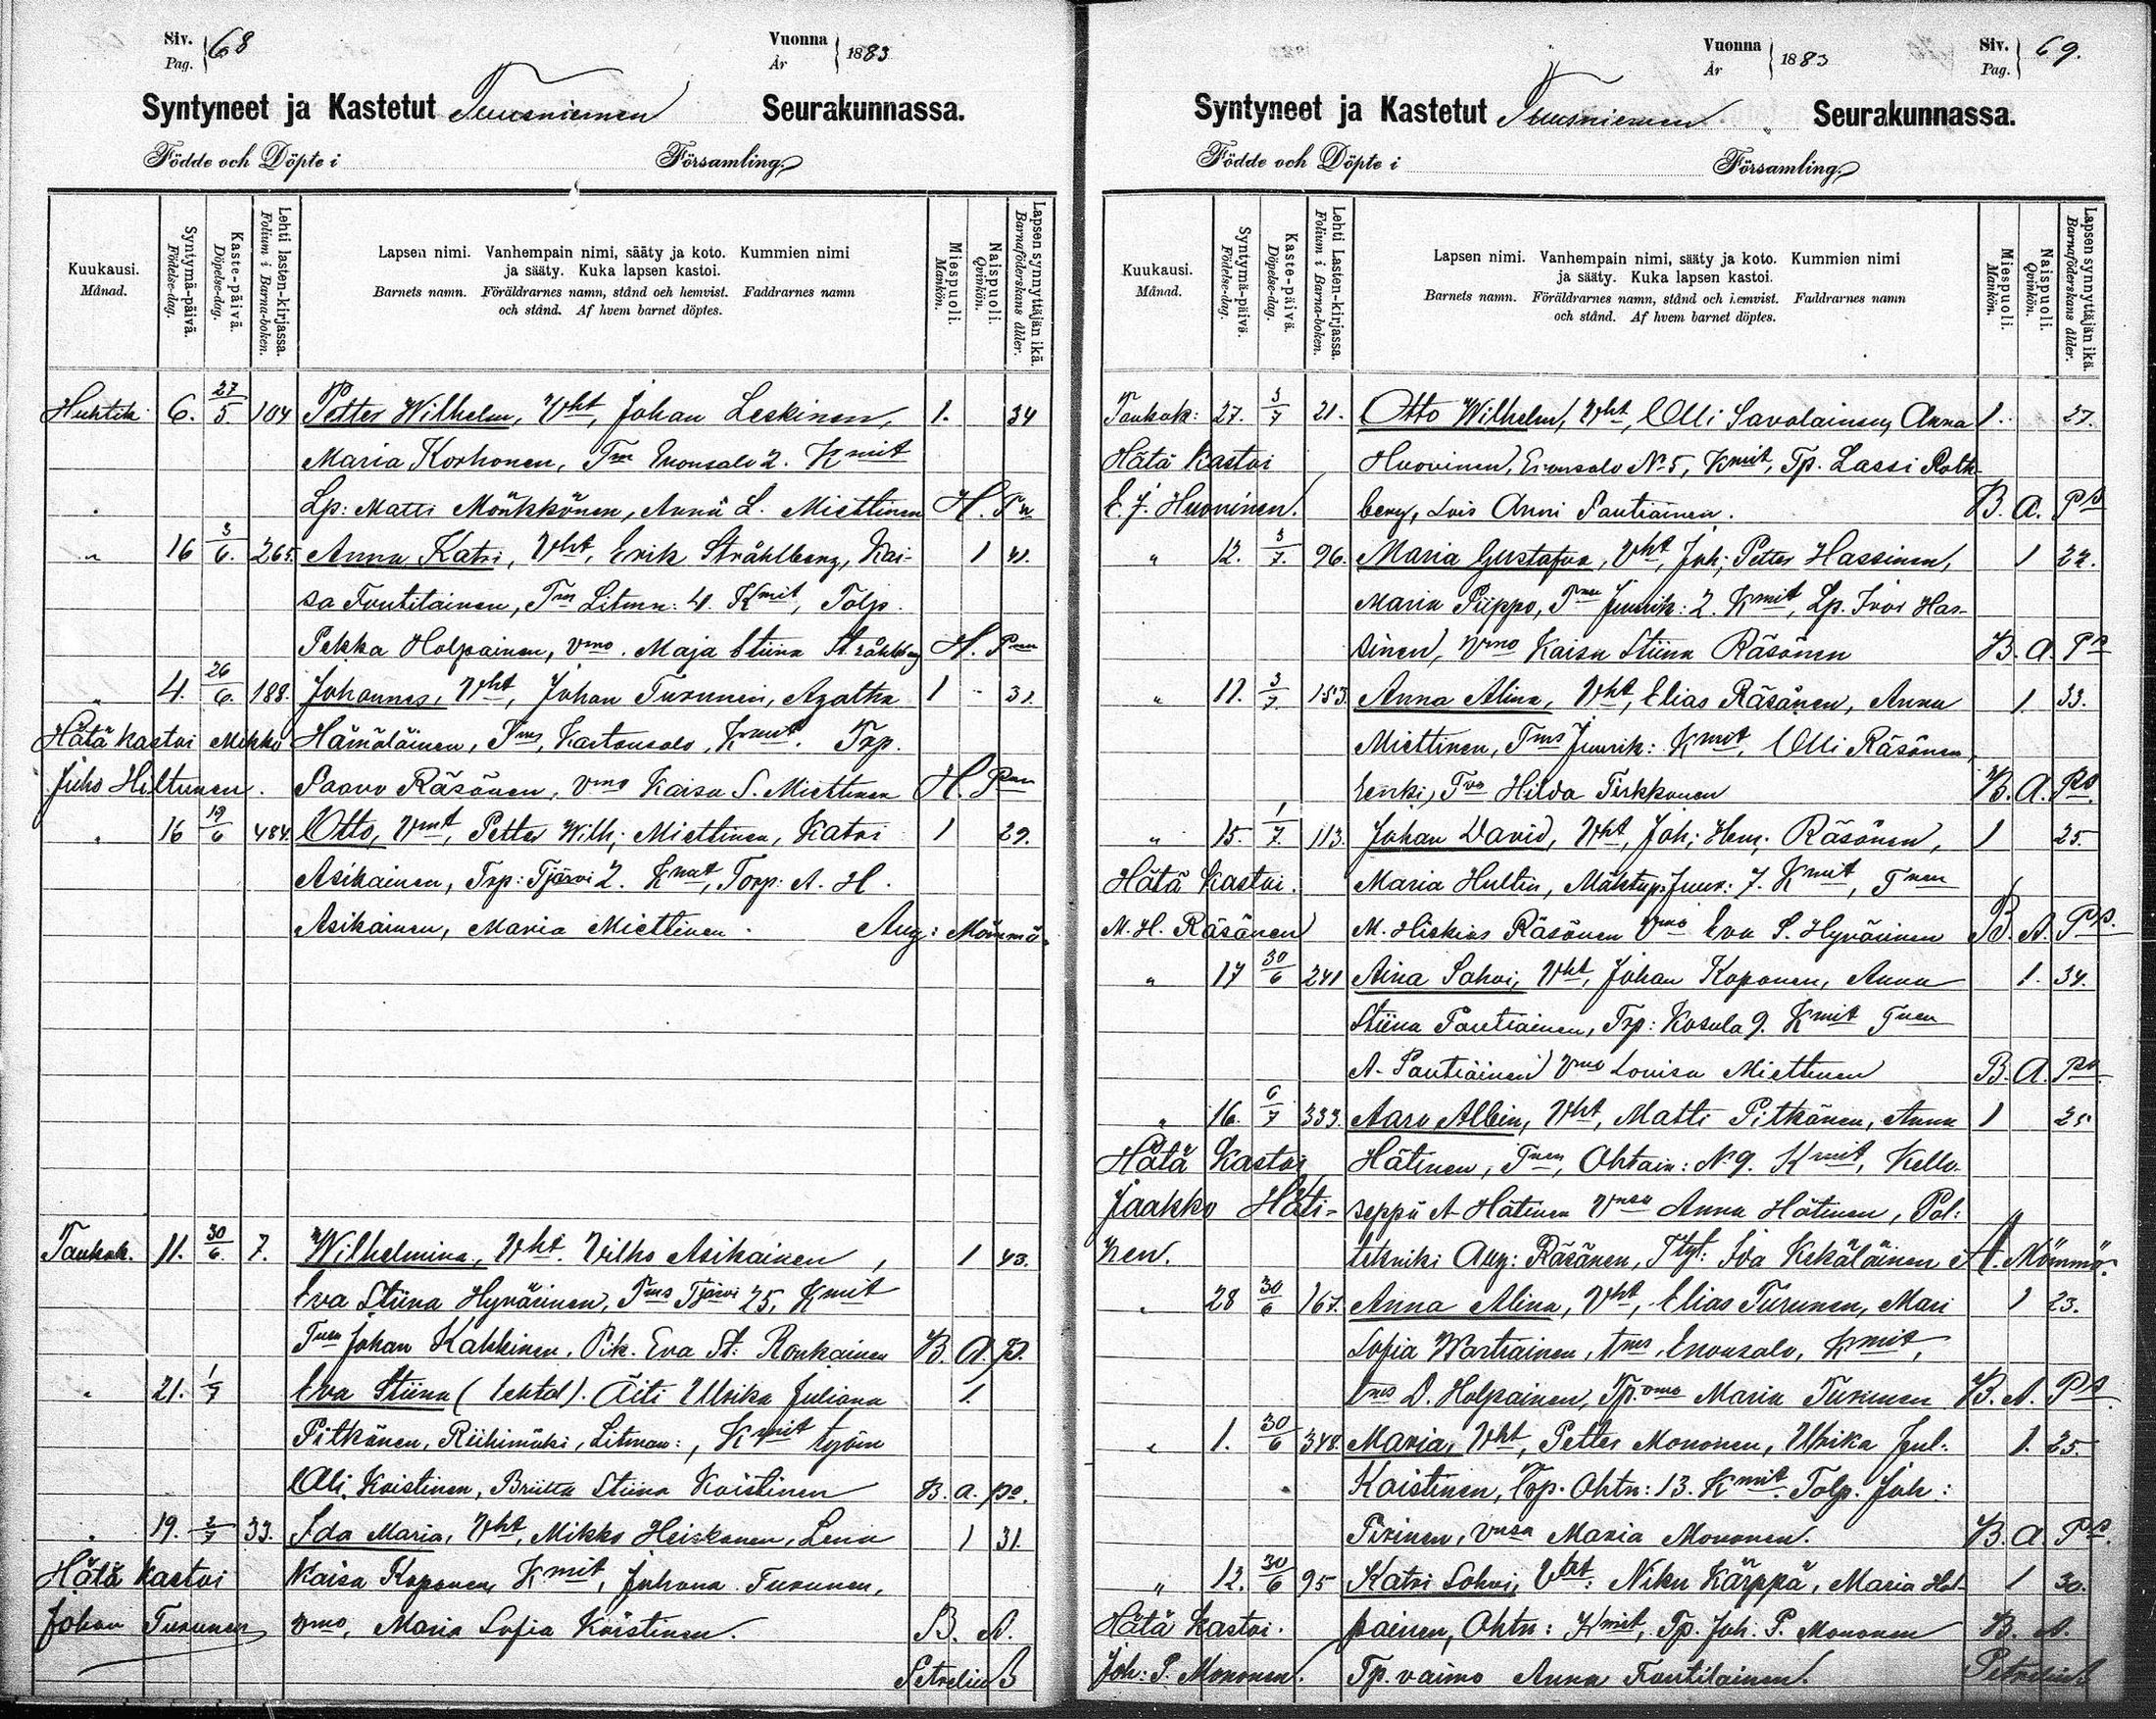 Siv. Pag. 68
Vuonna År 1883
Syntyneet ja Kastetut Tuusniemen Seurakunnassa.
Födde och Döpte i Församling.
Kuukausi. Månad.
Syntymä-päivä. Födelse-dag.
Kaste-päivä. Döpelse-dag.
Lehti lasten-kirjassa. Folium i Barna-boken.
Lapsen nimi. Vanhempain nimi, sääty ja koto. Kummien nimi
ja sääty. Kuka lapsen kastoi.
Barnets namn. Föräldrarnes namn, stånd och hemvist. Faddrarnes namn
och stånd. Af hvem barnet döptes.
Miespuoli. Mankön.
Naispuoli. Qvinkön.
Lapsen synnyttäjän ikä. Barnaföderskans ålder.
Huhtik. 6. 27/5. 104 Petter Wilhelm, Vht, Johan Leskinen, 1. 34
Maria Korhonen, Tm Enonsalo 2. Kmit
Lp: Matti Mönkkönen, Anna L. Miettinen H. Pn
" 16 3/6. 265. Anna Katri, Vht, Erik Stråhlberg, Kai- 1 41.
sa Tontilainen, Tm Litmn: 4. Kmit, Talp.
Pekka Holpainen, vmo. Maja Stiina Stråhlberg H. Pnn
" 4. 26/6. 188. Johannes, Vht, Johan Turunen, Agatha 1 31.
Hätä kastoi Mikko Hämäläinen, Tms, Kartonsalo, Kmit. Trp.
Juho Hiltunen. Paavo Räsänen, vmo Kaisa S. Miettinen H. Pnn
" 16 19/6 484. Otto, Vmt, Petter Wilh; Miettinen, Katri 1 29.
Asikainen, Trp: Tjärvi 2. Kmit, Torp: A. H.
Asikainen, Maria Miettinen. Aug: Mömmö.
Toukok. 11. 30/6. 7. Wilhelmina, Vht. Vilho Asikainen, 1 43.
Eva Stiina Hyvärinen, Tms Tjärvi 25, Kmit
Tnen Johan Kakkinen, Pik. Eva St: Ronkainen B. A. P.
" 21. 1/7 Eva Stiina (lehtol). Äiti Ulrika Juliana 1.
Pitkänen, Riihimäki, Litman:, Kmit työm
Olli Koistinen, Briitta Stiina Koistinen B. A. Ps.
" 19. 2/7 33. Ida Maria, Vht, Mikko Heiskanen, Lena 1 31.
Hätä kastoi Kaisa Koponen, Kmit, Juhana Turunen,
Johan Turunen vmo, Maria Sofia Koistinen. B. A.
Petrelius
Vuonna År 1883
Siv. Pag. 69.
Syntyneet ja Kastetut Tuusniemen Seurakunnassa.
Födde och Döpte i Församling.
Kuukausi. Månad.
Syntymä-päivä. Födelse-dag.
Kaste-päivä. Döpelse-dag.
Lehti Lasten-kirjassa. Folium i Barna-boken.
Lapsen nimi. Vanhempain nimi, sääty ja koto. Kummien nimi
ja sääty. Kuka lapsen kastoi.
Barnets namn. Föräldrarnes namn, stånd och hemvist. Faddrarnes namn
och stånd. Af hvem barnet döptes.
Miespuoli. Mankön.
Naispuoli. Qvinkön.
Lapsen synnyttäjän ikä. Barnaföderskans ålder.
Toukok: 27. 3/7 21. Otto Wilhelm, Vht, Olli Savolainen, Anna 1. 27.
Hätä kastoi Huovinen, Enonsalo No 5, Kmit, Tp. Lassi Roth-
E. J. Huovinen. berg, Lois Anni Pautiainen. B. A. Ps
" 12. 3/7. 96. Maria Gustafva, Vht, Joh; Petter Hassinen, 1 22.
Maria Piippo, Juurik: 2. Kmit, Lp. Ivar Has-
sinen, Vmo Kaisa Stiina Räsänen B. A. Ps
" 11. 3/7. 153. Anna Alina, Vht, Elias Räsänen, Anna 1. 33.
Miettinen, Tms Juurik: Kmit, Olli Räsänen,
Hilda Pirkkonen B. A. Ps.
" 15. 1/7. 113. Johan David, Vht, Joh; Hen; Räsänen, 1 25.
Hätä kastoi. Maria Hultin, Mäktup: Juur: 7. Kmit, Tnen
M. H. Räsänen M. Hiskias Räsänen Vmo Eva S. Hyvärinen B. A. Ps.
" 17 30/6 241 Aina Sohvi, Vht, Johan Koponen, Anna 1. 34.
Stiina Pautiainen, Trp: Kosula 9. Kmit Tnen
A. Pautiainen Vmo Lovisa Miettinen B. A. Ps.
" 16. 6/7 333. Aaro Albin, Vht, Matti Pitkänen, Anna 1 25
Hätä kastoi Hätinen, Tnen, Ohtain: No 9. Kmit, Kello-
Jaakko Häti- seppä A Hätinen Vnsa Anna Hätinen, Pol:
nen. tekniki Aug: Räsänen, Ttyt: Ida Kekäläinen A. Mömmö.
" 28 30/6 167. Anna Alina, Vht, Elias Turunen, Mari 1 23.
Sofia Wartiainen, tms, Enonsalo, Kmit,
tms D. Holpainen, Tp. vmo Maria Turunen B. A. Ps.
" 1. 30/6 348. Maria, Vht, Petter Mononen, Ulrika Jul: 1. 25.
Koistinen, Trp. Ohtn: 13. Kmit. Talp. Joh:
Pirinen, vnsa Maria Mononen. B. A. Ps.
" 12. 30/6 95 Katri Sohvi, Vht: Niku Kärppä, Maria Hol- 1 30.
Hätä kastoi. painen, Ohtn: Kmit, Tp. Joh. P. Mononen B. A.
Joh: P. Mononen. Tp. vaimo Anna Tontilainen. Petrelius